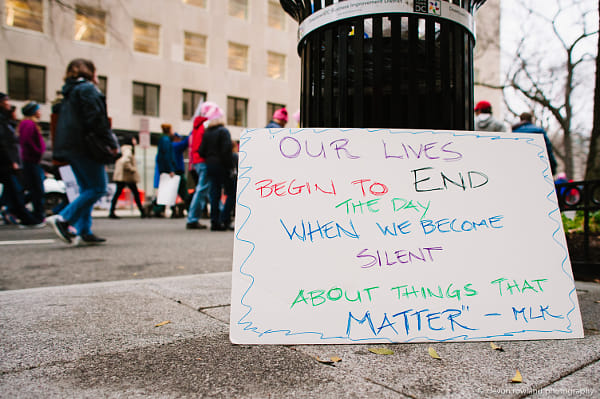 Business Improvement District
OUR LIVES
BEGIN TO END
THE DAY
WHEN WE BECOME
SILENT
ABOUT THINGS THAT
MATTER" - MLK
© devon rowland photography